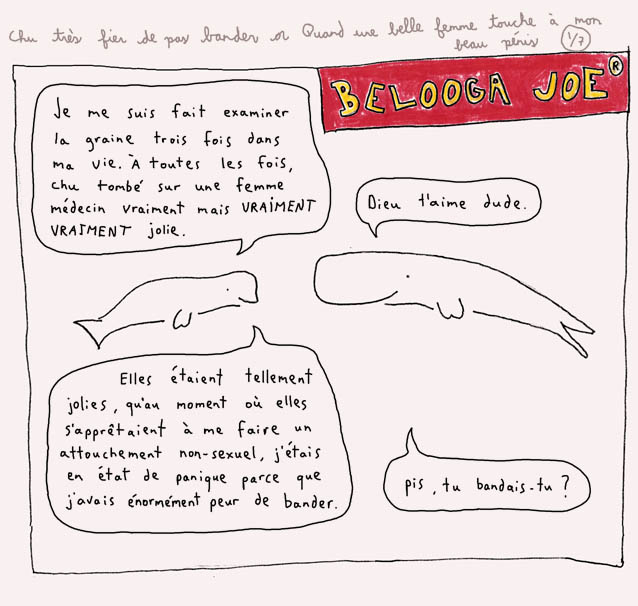 Chu très fier de pas bander or Quand une belle femme touche à mon
beau pénis 1/7
BELOOGA JOE®
Je me suis fait examiner
la graine trois fois dans
ma vie. À toutes les fois,
chu tombé sur une femme
médecin vraiment mais VRAIMENT
VRAIMENT jolie.
Dieu t'aime dude.
Elles étaient tellement
jolies, qu'au moment où elles
s'apprêtaient à me faire un
attouchement non-sexuel, j'étais
en état de panique parce que
j'avais énormément peur de bander.
pis, tu bandais-tu ?